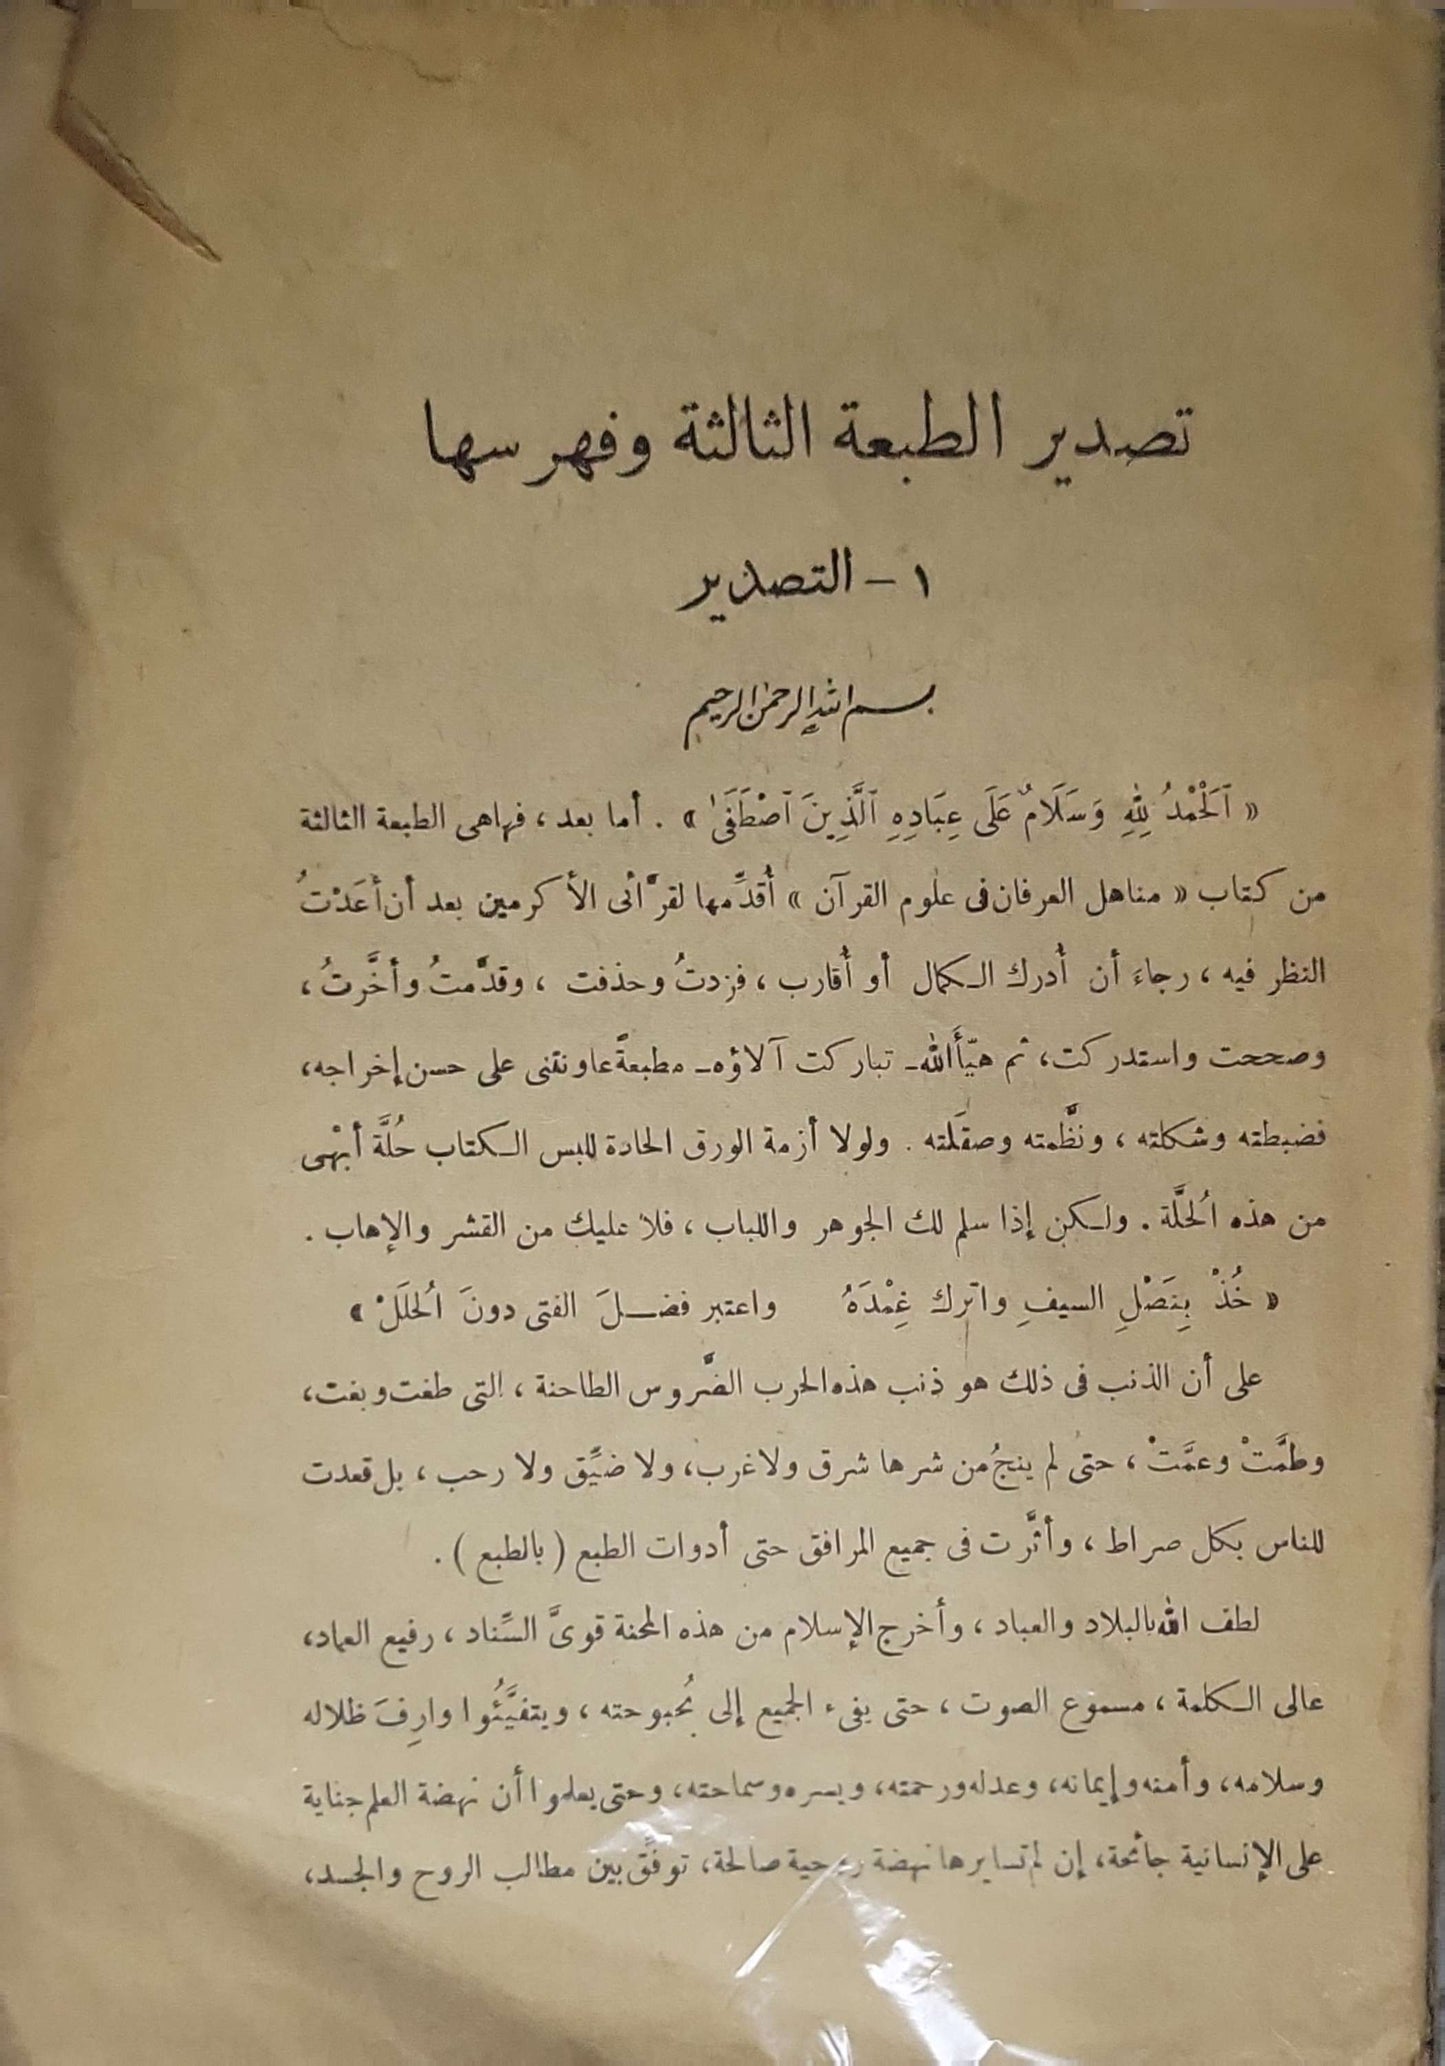 تصدير الطبعة الثالثة وفهرسها
١ - التصدير
بسم الله الرحمن الرحيم
« ٱلْحَمْدُ لِلّٰهِ وَسَلَامٌ عَلَى عِبَادِهِ ٱلَّذِينَ ٱصْطَفَىٰ » . أما بعد ، فهاهى الطبعة الثالثة
من كتاب « مناهل العرفان فى علوم القرآن » أُقدِّمها لقرَّائى الأكرمين بعد أن أعَدْتُ
النظر فيه ، رجاءَ أن أُدرك الكمال أو أُقارب ، فزدتُ وحذفت ، وقدَّمتُ وأخَّرتُ ،
وصححت واستدركت ، ثم هيّأَ الله ـ تباركت آلاؤه ـ مطبعةً عاونتنى على حسن إخراجه ،
فضبطته وشكلته ، ونظَّمته وصقَلته . ولولا أزمة الورق الحادة للبس الكتاب حُلَّة أبْهى
من هذه الُحلَّة . ولكن إذا سلم لك الجوهر واللباب ، فلا عليك من القشر والإهاب .
« خُذْ بِنَصْلِ السيفِ واترك غِمْدَهُ واعتبر فضـلَ الفتى دونَ الُحلَلْ »
على أن الذنب فى ذلك هو ذنب هذه الحرب الضَّروس الطاحنة ، التى طغت وبغت ،
وطمَّتْ وعمَّتْ ، حتى لم ينجُ من شرها شرق ولا غرب ، ولا ضيِّق ولا رحب ، بل قعدت
للناس بكل صراط ، وأثَّرت فى جميع المرافق حتى أدوات الطبع ( بالطبع ) .
لطف الله بالبلاد والعباد ، وأخرج الإسلام من هذه المحنة قوىَّ السِّناد ، رفيع العماد ،
عالى الكلمة ، مسموع الصوت ، حتى يفىء الجميع إلى بُحبوحته ، ويتفيَّئُوا وارِفَ ظلاله
وسلامه ، وأمنه وإيمانه ، وعدله ورحمته ، ويسره وسماحته ، وحتى يعلموا أن نهضة العلم جناية
على الإنسانية جائحة ، إن لم تسايرها نهضة روحية صالحة ، توفِّق بين مطالب الروح والجسد ،